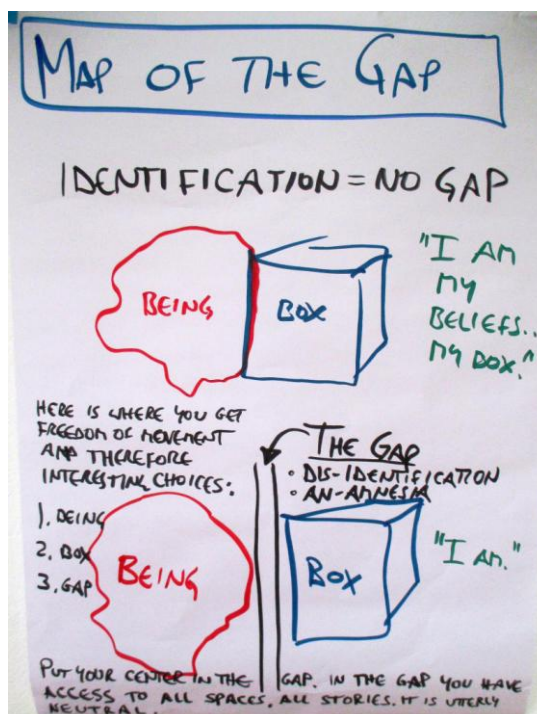 MAP OF THE GAP
IDENTIFICATION = NO GAP
BEING
BOX
"I AM
MY
BELIEFS..
MY BOX."
HERE IS WHERE YOU GET
FREEDOM OF MOVEMENT
AND THEREFORE
INTERESTING CHOICES:
1. BEING
2. BOX
3. GAP
THE GAP
• DIS-IDENTIFICATION
• AN-AMNESIA
BEING
BOX
"I AM."
PUT YOUR CENTER IN THE GAP. IN THE GAP YOU HAVE
ACCESS TO ALL SPACES, ALL STORIES. IT IS UTERLY
NEUTRAL.